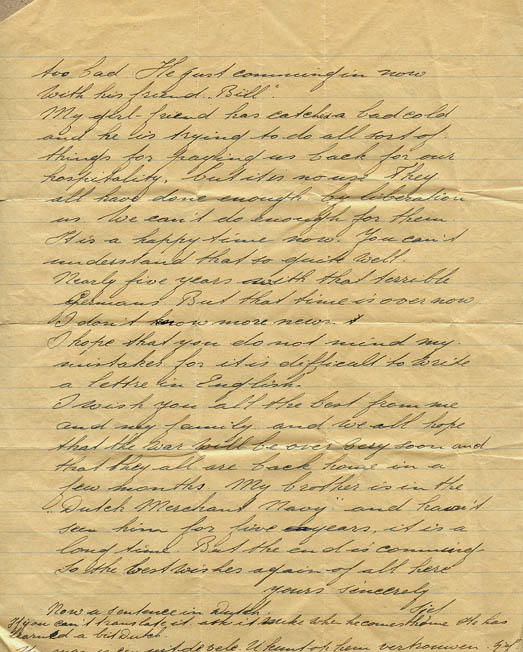 too bad. He just comming in now
with his friend „Bill".
My girl-friend has catch a bad cold
and he is trying to do all sort of
things for paying us back for our
hospitality, but it is no use They
all have done enough by liberation
us. We can't do enough for them
It is a happy time now. You can't
understand that so quite well.
Nearly five years with that terrible
Germans. But that time is over now
I don't know more news.
I hope that you do not mind my
mistakes for it is difficult to write
a lettre in English.
I wish you all the best from me
and my family and we all hope
that the war will be over very soon and
that they all are back home in a
few months. My brother is in the
„Dutch Merchant Navy" and hav'nt
seen him for five years, it is a
long time. But the end is comming
So the best wishes again of all here
yours sincerely
Now a sentence in Dutch.
If you can't translate it ask it Mike when he comes home He has
learned a bit Dutch.
U kunt op hem vertrouwen.